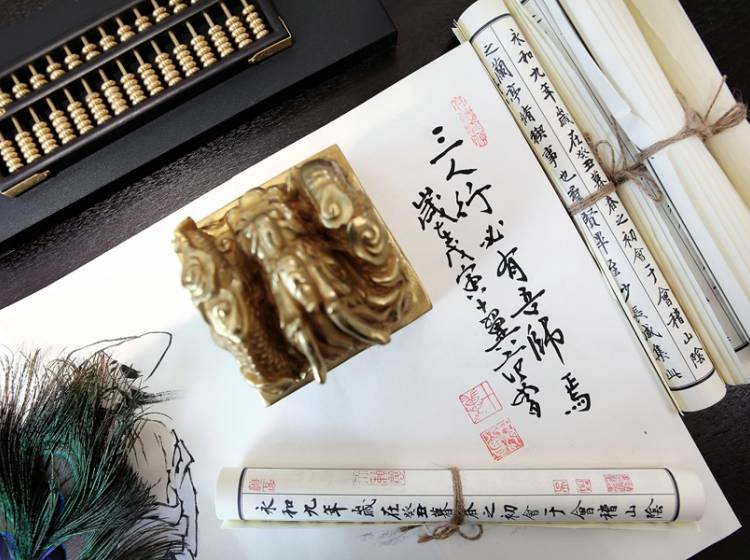 永和九年歲在癸丑暮春之初會于會稽山陰
之蘭亭脩稧事也群賢畢至少長咸集此
三人行必有吾師焉
歲在戊寅
永和九年歲在癸丑暮春之初會于會稽山陰